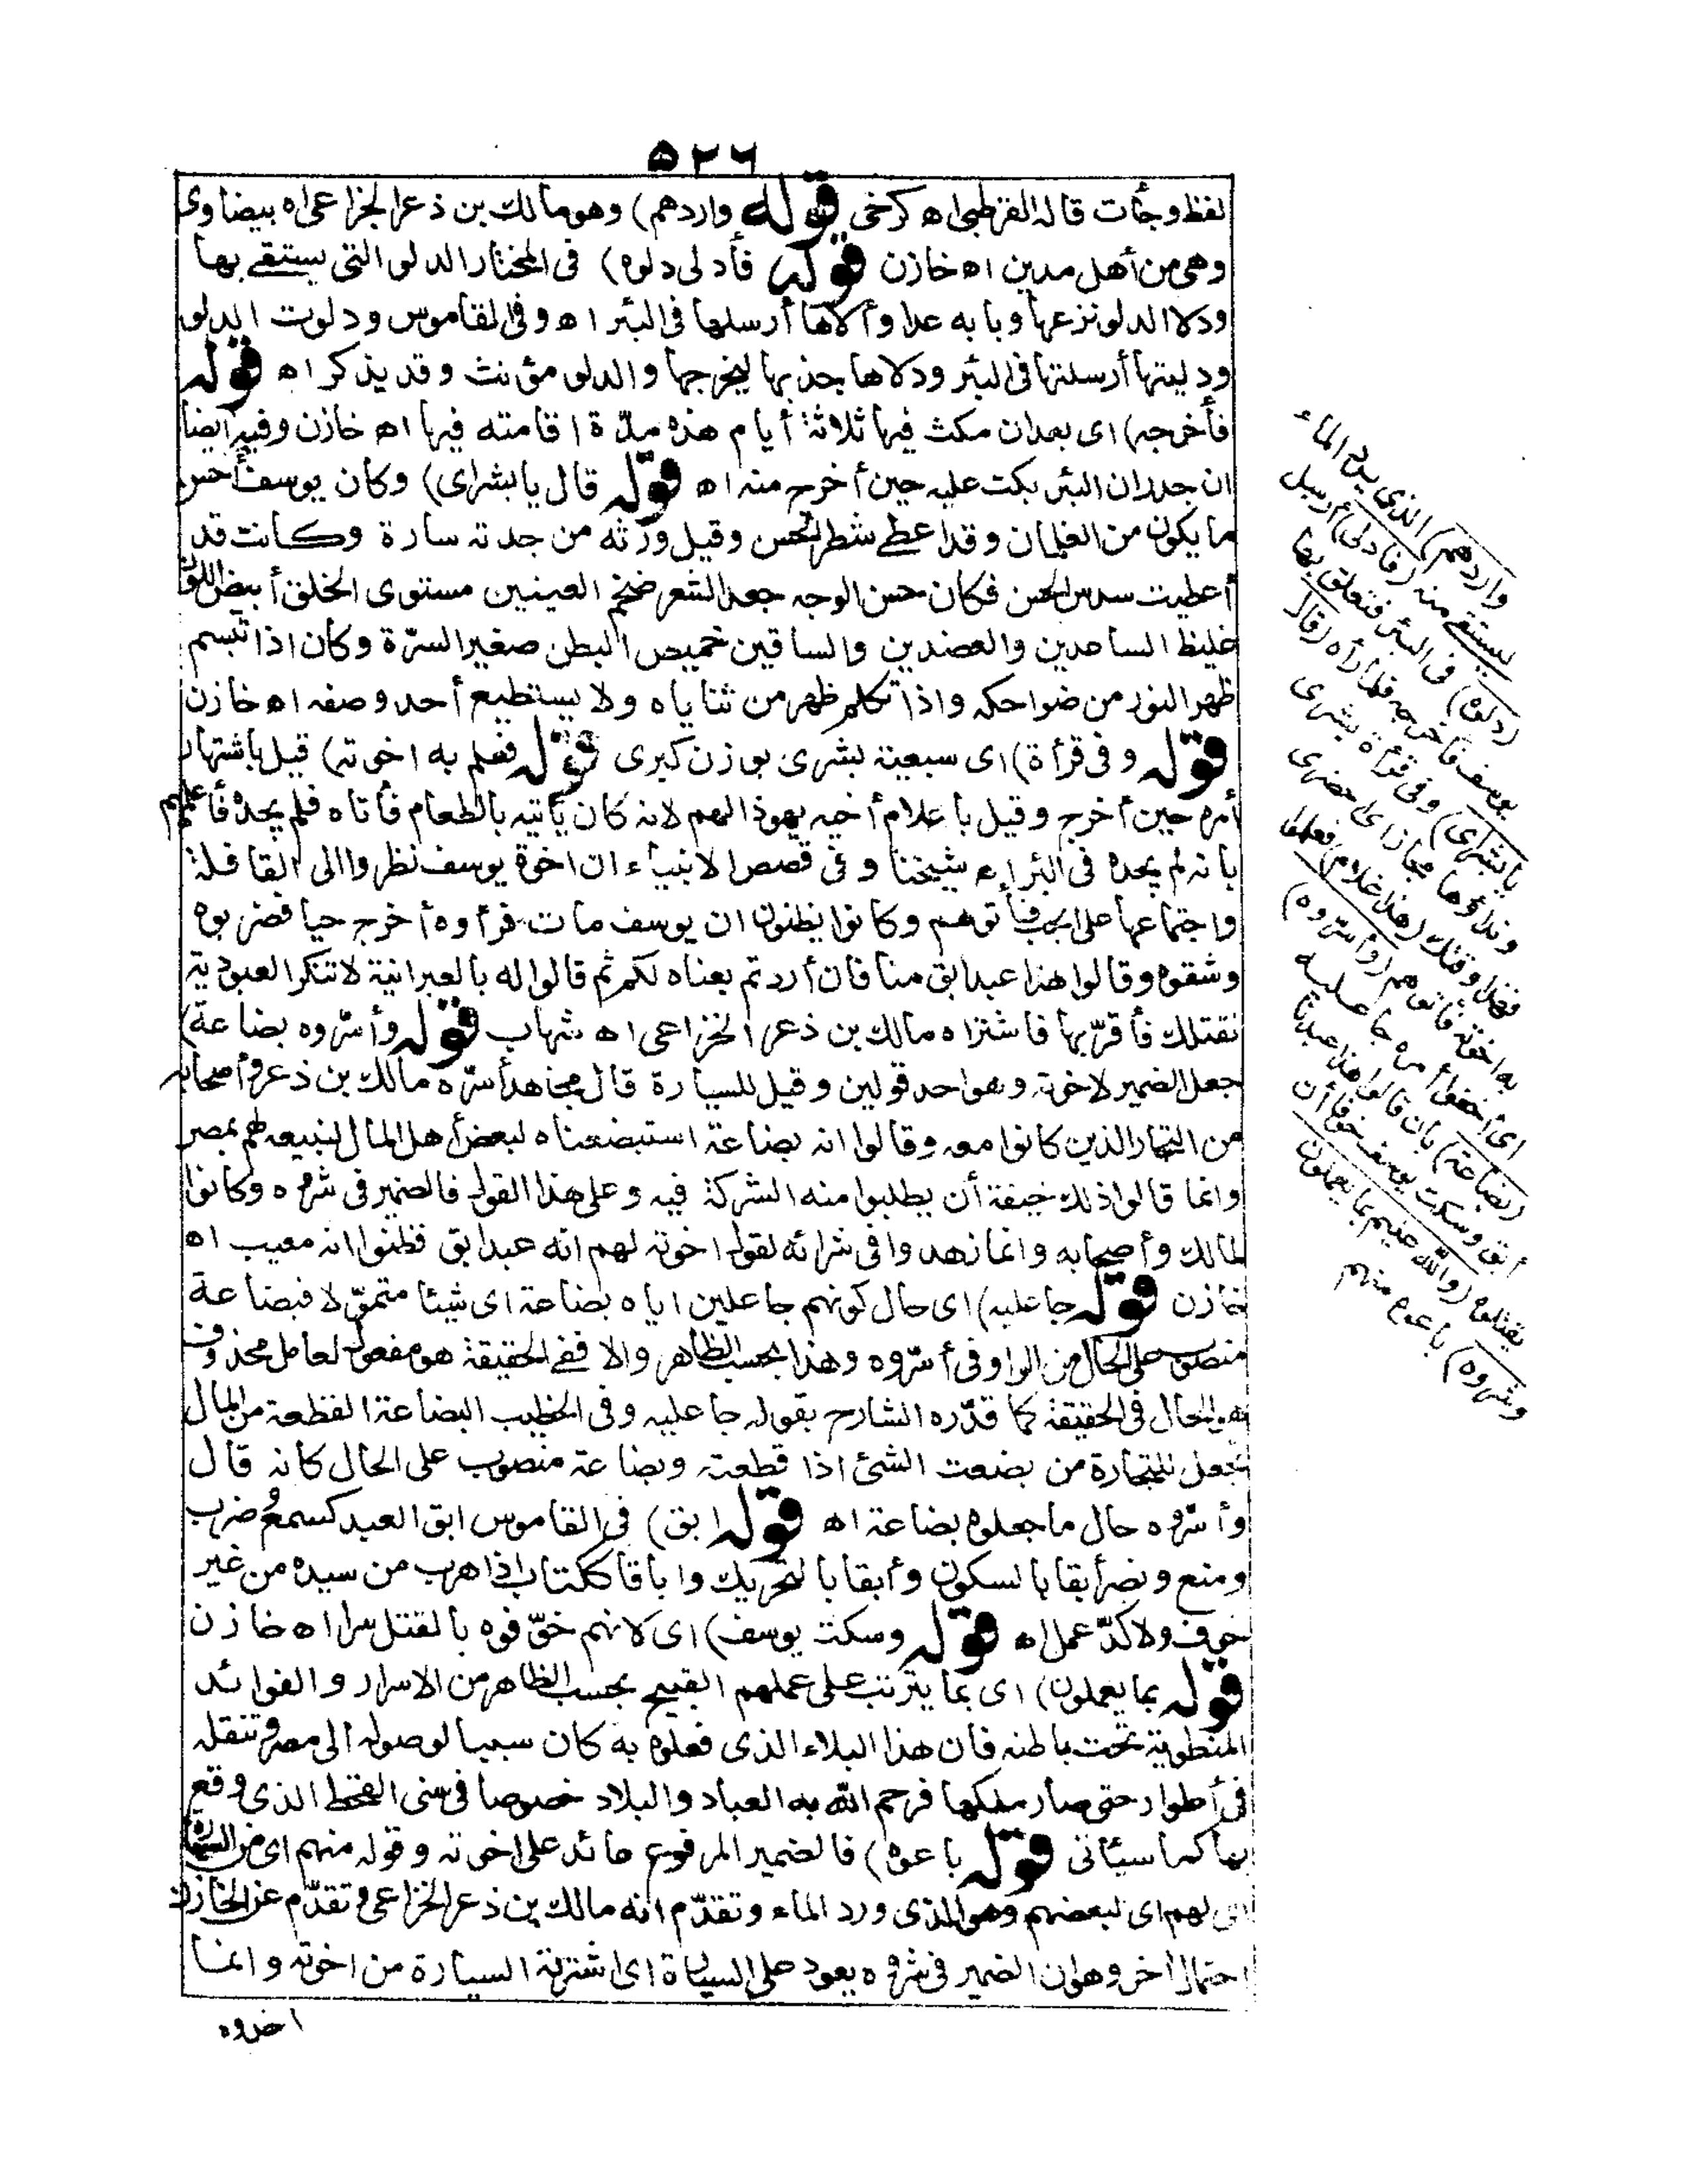 ٥٢٦
لفظ وجأت قاله القرطبى اه كرخى قوله واردهم) وهو مالك بن ذعر الخزاعى اه بيضاوى
وهى من أهل مدين اه خازن قوله فأدلى دلوه) فى المختار الدلو التى يستقى بها
ودلا الدلو نزعها وبابه عدا وأدلاها أرسلها فى البئر اه وفى القاموس ودلوت الدلو
ودليتها أرسلتها فى البئر ودلاها جذبها ليخرجها والدلو مؤنث وقد يذكر اه قوله
فأخرجه) اى بعد ان مكث فيها ثلاثة أيام هذه مدّة اقامته فيها اه خازن وفيه أيضا
ان جدران البئر بكت عليه حين أخرج منه اه قوله قال يا بشراى) وكان يوسف أحسن
ما يكون من الغلمان وقد اعطى شطر الحسن وقيل ورثه من جدته سارة وكانت قد
أعطيت سدس الحسن فكان حسن الوجه جعد الشعر ضخم العينين مستوى الخلق أبيض اللون
غليظ الساعدين والعضدين والساقين خميص البطن صغير السرّة وكان اذا تبسم
ظهر النور من ضواحكه واذا تكلم ظهر من ثناياه ولا يستطيع أحد وصفه اه خازن
قوله وفى قرأة) اى سبعية بشرى بوزن كبرى قوله فعلم به اخوته) قيل باشتهار
أمره حين أخرج وقيل باعلام أخيه يهوذا لهم لانه كان يأتيه بالطعام فأتاه فلم يجده فأعلمهم
بانه لم يجده فى البئر اه شيخنا وفى قصص الانبياء ان اخوة يوسف نظروا الى القافلة
واجتماعها على الجب فأتوهم وكانوا يظنون ان يوسف مات فرأوه أخرج حيا فضربوه
وشقوه وقالوا هذا عبد ابق منا فان أردتم بعناه لكم ثم قالوا له بالعبرانية لا تنكر العبودية
نقتلك فأقرّ بها فاشتراه مالك بن ذعر الخزاعى اه شهاب قوله وأسرّوه بضاعة)
جعل الضمير لاخوته وهو احد قولين وقيل للسيارة قال مجاهد أسرّه مالك بن ذعر وأصحابه
من التجار الذين كانوا معه وقالوا انه بضاعة استبضعناه لبعض أهل المال لنبيعه لهم بمصر
وانما قالوا ذلك خيفة أن يطلبوا منه الشركة فيه وعلى هذا القول فالضمير فى شروه وكانوا
لمالك وأصحابه وانما زهدوا فى شرائه لقول اخوته لهم انه عبد ابق فظنوا انه معيب اه
خازن قوله جاعليه) اى حال كونهم جاعلين اياه بضاعة اى شيئا متمولا فبضاعة
منصوب على الحال من الواو فى أسرّوه وهذا بحسب الظاهر والا ففى الحقيقة هو مفعول لعامل محذوف
هو الحال فى الحقيقة كما قدّره الشارح بقوله جاعليه وفى الخطيب البضاعة القطعة من المال
تجعل للتجارة من بضعت الشئ اذا قطعته وبضاعة منصوب على الحال كانه قال
وأسرّوه حال ما جعلوه بضاعة اه قوله ابق) فى القاموس ابق العبد كسمع وضرب
ومنع ونصر أبقا بالسكون وأبقا بالتحريك واباقا ككتاب اذا هرب من سيده من غير
خوف ولا كدّ عمل اه قوله وسكت يوسف) اى لانهم خوّفوه بالقتل سرا اه خازن
قوله بما يعملون) اى بما يترتب على عملهم القبيح بحسب الظاهر من الاسرار والفوائد
المنطوية تحت باطنه فان هذا البلاء الذى فعلوه به كان سببا لوصوله الى مصر وتنقله
فى أطوار حتى صار ملكها فرحم الله به العباد والبلاد خصوصا فى سنى القحط الذى وقع
بها كما سيأتى قوله باعوه) فالضمير المرفوع عائد على اخوته وقوله منهم اى من السيارة
اى لهم اى لبعضهم وهو الذى ورد الماء وتقدّم انه مالك بن ذعر الخزاعى وتقدّم عن الخازن
احتمال أخر وهو ان الضمير فى شروه يعود على السيارة اى اشترته السيارة من اخوته وانما
اخذوه
واردهم) الذى يرد الماء
ليستقى منه (فادلى) أرسل
(دلوه) فى البئر فتعلق بها
يوسف فأخرجه فلما رأه (قال
يا بشراى) وفى قرأة بشرى
ونداؤها مجاز اى احضرى
فهذا وقتك (هذا غلام) فعلم
به اخوته فأتوهم (وأسرّوه)
اى أخفوا أمره جاعليه
(بضاعة) بان قالوا هذا عبدنا
أبق وسكت يوسف خوفا أن
يقتلوه (والله عليم بما يعملون
وشروه) باعوه منهم